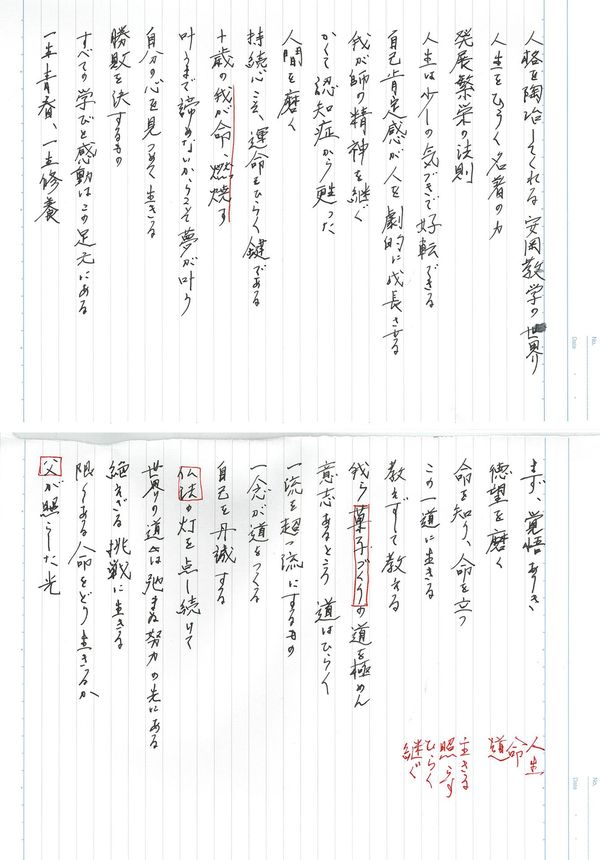 人格を陶冶してくれる安岡教学の世界
人生をひらく名著の力
発展繁栄の法則
人生は少しの気づきで好転できる
自己肯定感が人を劇的に成長させる
我が師の精神を継ぐ
かくて認知症から甦った
人間を磨く
持続心こそ、運命をひらく鍵である
十歳の我が命、燃焼す
叶うまで諦めないからこそ夢が叶う
自分の心を見つめて生きる
勝敗を決するもの
すべての学びと感動はこの足元にある
一生青春、一生修養
No.
Date
まず、覚悟ありき
徳望を磨く
命を知り、命を立つ
この一道に生きる
教えずして教える
我ら菓子づくりの道を極めん
意志あるところ道はひらく
一流を超一流にするもの
一念が道をつくる
自己を丹誠する
仏法の灯を点し続けて
世界への道は弛まぬ努力の先にある
絶えざる挑戦に生きる
限りある命をどう生きるか
父が照らした光
人生
命
道
生きる
照らす
ひらく
継ぐ
No.
Date